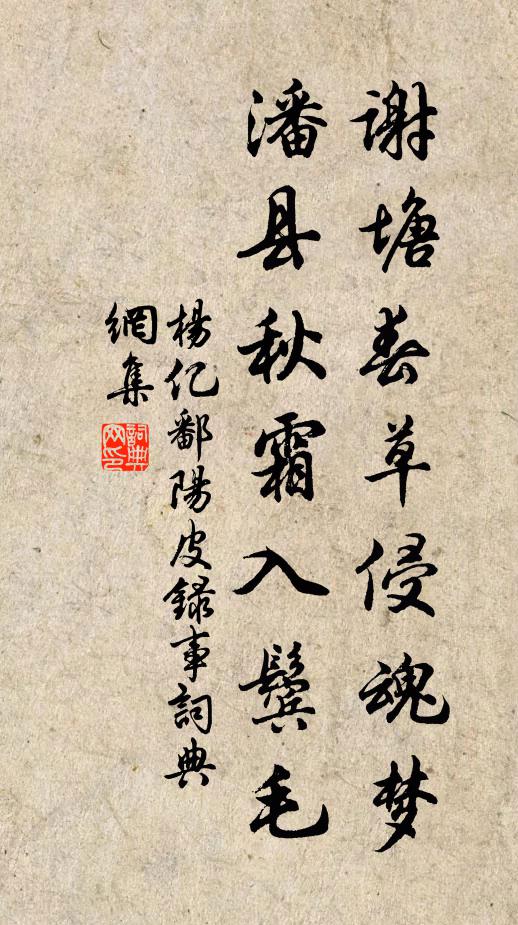 谢塘春草侵魂梦
潘县秋霜入鬓毛
楊亿鄱陽皮録事詞典
網集
詞典
网印